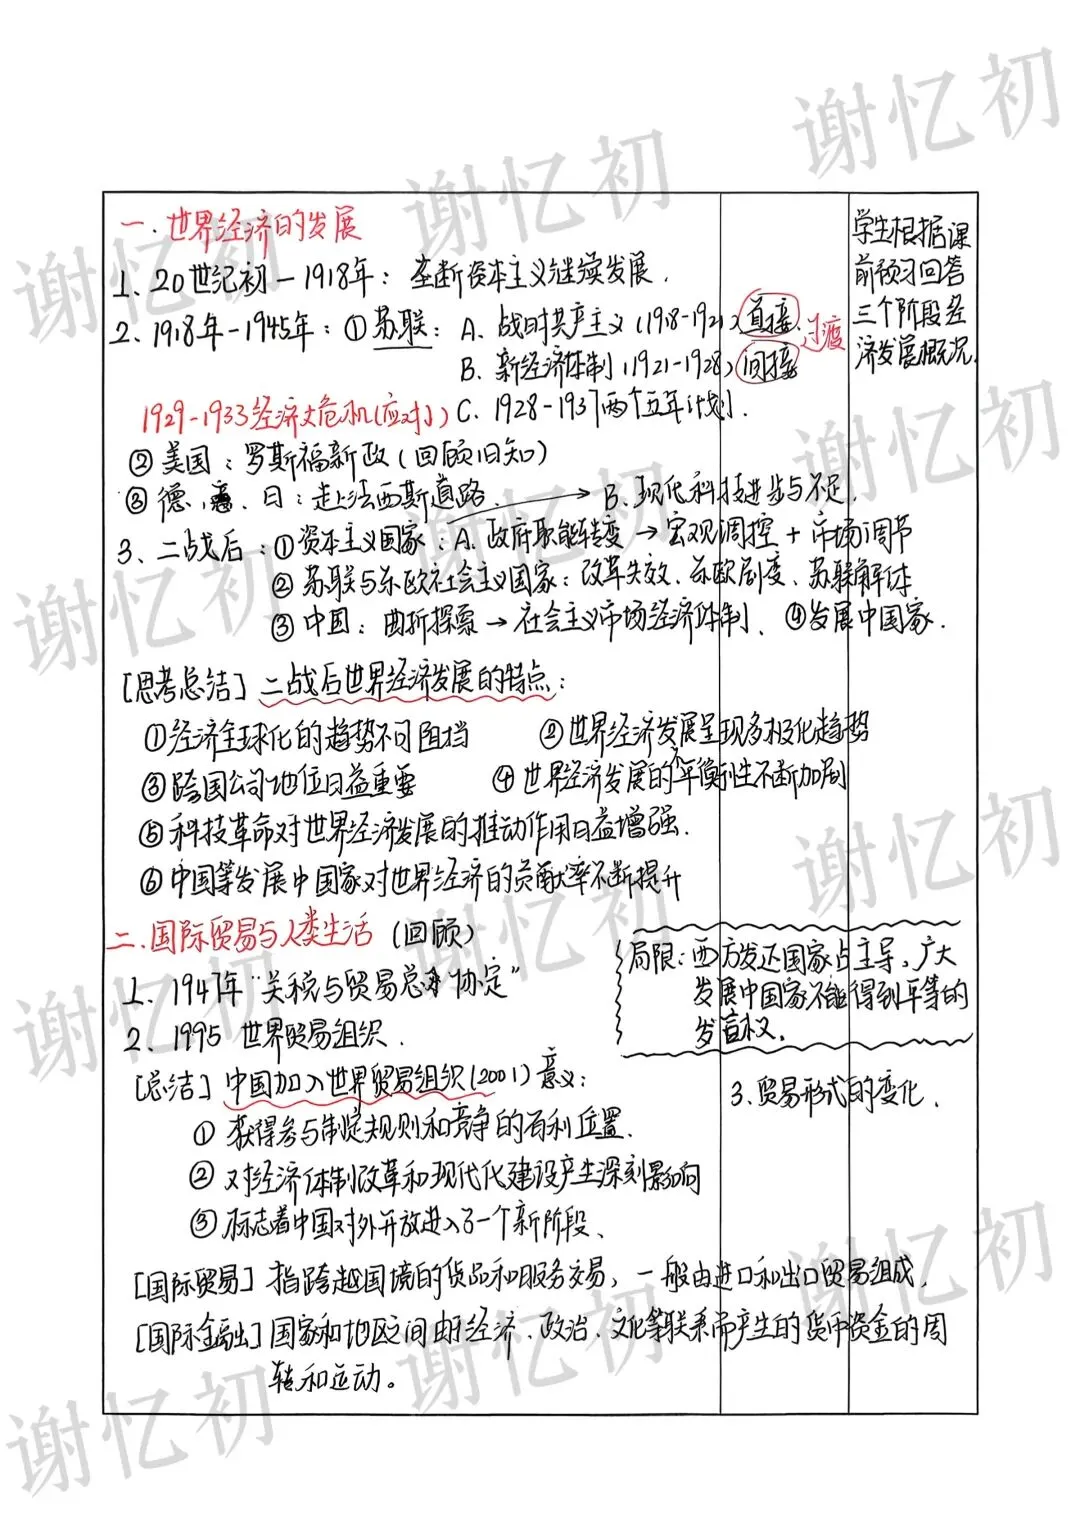 一.世界经济的发展
1、20世纪初一1918年：垄断资本主义继续发展.
2、1918年-1945年：①苏联：A、战时共产主义(1918-1921)直接、过渡
B、新经济体制(1921-1928)间接
1929-1933经济大危机(应对) C、1928-1937两个五年计划.
②美国：罗斯福新政(回顾旧知)
③德、意、日：走上法西斯道路. → B.现代科技进步与不足.
3、二战后：①资本主义国家：A、政府职能转变→宏观调控+市场调节
②苏联与东欧社会主义国家：改革失效、东欧剧变、苏联解体
③中国：曲折探索→社会主义市场经济体制、④发展中国家.
[思考总结]二战后世界经济发展的特点：
①经济全球化的趋势不可阻挡 ②世界经济发展呈现多极化趋势
③跨国公司地位日益重要 ④世界经济发展的不平衡性不断加剧
⑤科技革命对世界经济发展的推动作用日益增强.
⑥中国等发展中国家对世界经济的贡献率不断提升
二.国际贸易与人类生活(回顾)
1、1947年"关税与贸易总协定"
2、1995 世界贸易组织.
[总结]中国加入世界贸易组织(2001)意义：
①获得参与制定规则和竞争的有利位置.
②对经济体制改革和现代化建设产生深刻影响
③标志着中国对外开放进入了一个新阶段、
[国际贸易]指跨越国境的货品和服务交易，一般由进口和出口贸易组成.
[国际金融]国家和地区之间由于经济、政治、文化等联系而产生的货币资金的周
转和运动。
局限：西方发达国家占主导，广大
发展中国家不能得到平等的
发言权.
3.贸易形式的变化.
学生根据课
前预习回答
三个阶段经
济发展概况.
谢忆初
谢忆初
谢忆初
谢忆初
谢忆初
谢忆初
谢忆初
谢忆初
谢忆初
谢忆初
谢忆初
谢忆初